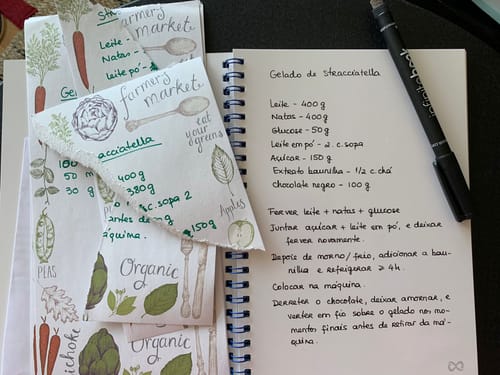 Stra
Leite -
Natas -
leite pó -
Farmers
market
Ge
farmers
market
eat
your
greens
acciatella
100
50
30 g
400g
380g
m/2
c. sopa 2
antes de
g
150g
áquima.
Apples
PEAS
Organic
Organic
ichoke
Gelado de Stracciatella
Leite - 400g
Natas - 400g
Glucose - 50g
Leite em pó - 2 c. sopa
Açúcar - 150g
Extrato baunilha - 1/2 c. chá
chocolate negro - 100g
Ferver leite + natas + glucose
Juntar açúcar + leite em pó, e deixar
ferver novamente.
Depois de morno/frio, adicionar a bau-
nilha e refrigerar ≥ 4h.
Colocar na máquina.
Derreter o chocolate, deixar amornar, e
verter em fio sobre o gelado nos mo-
mentos finais antes de retirar da má-
quina.